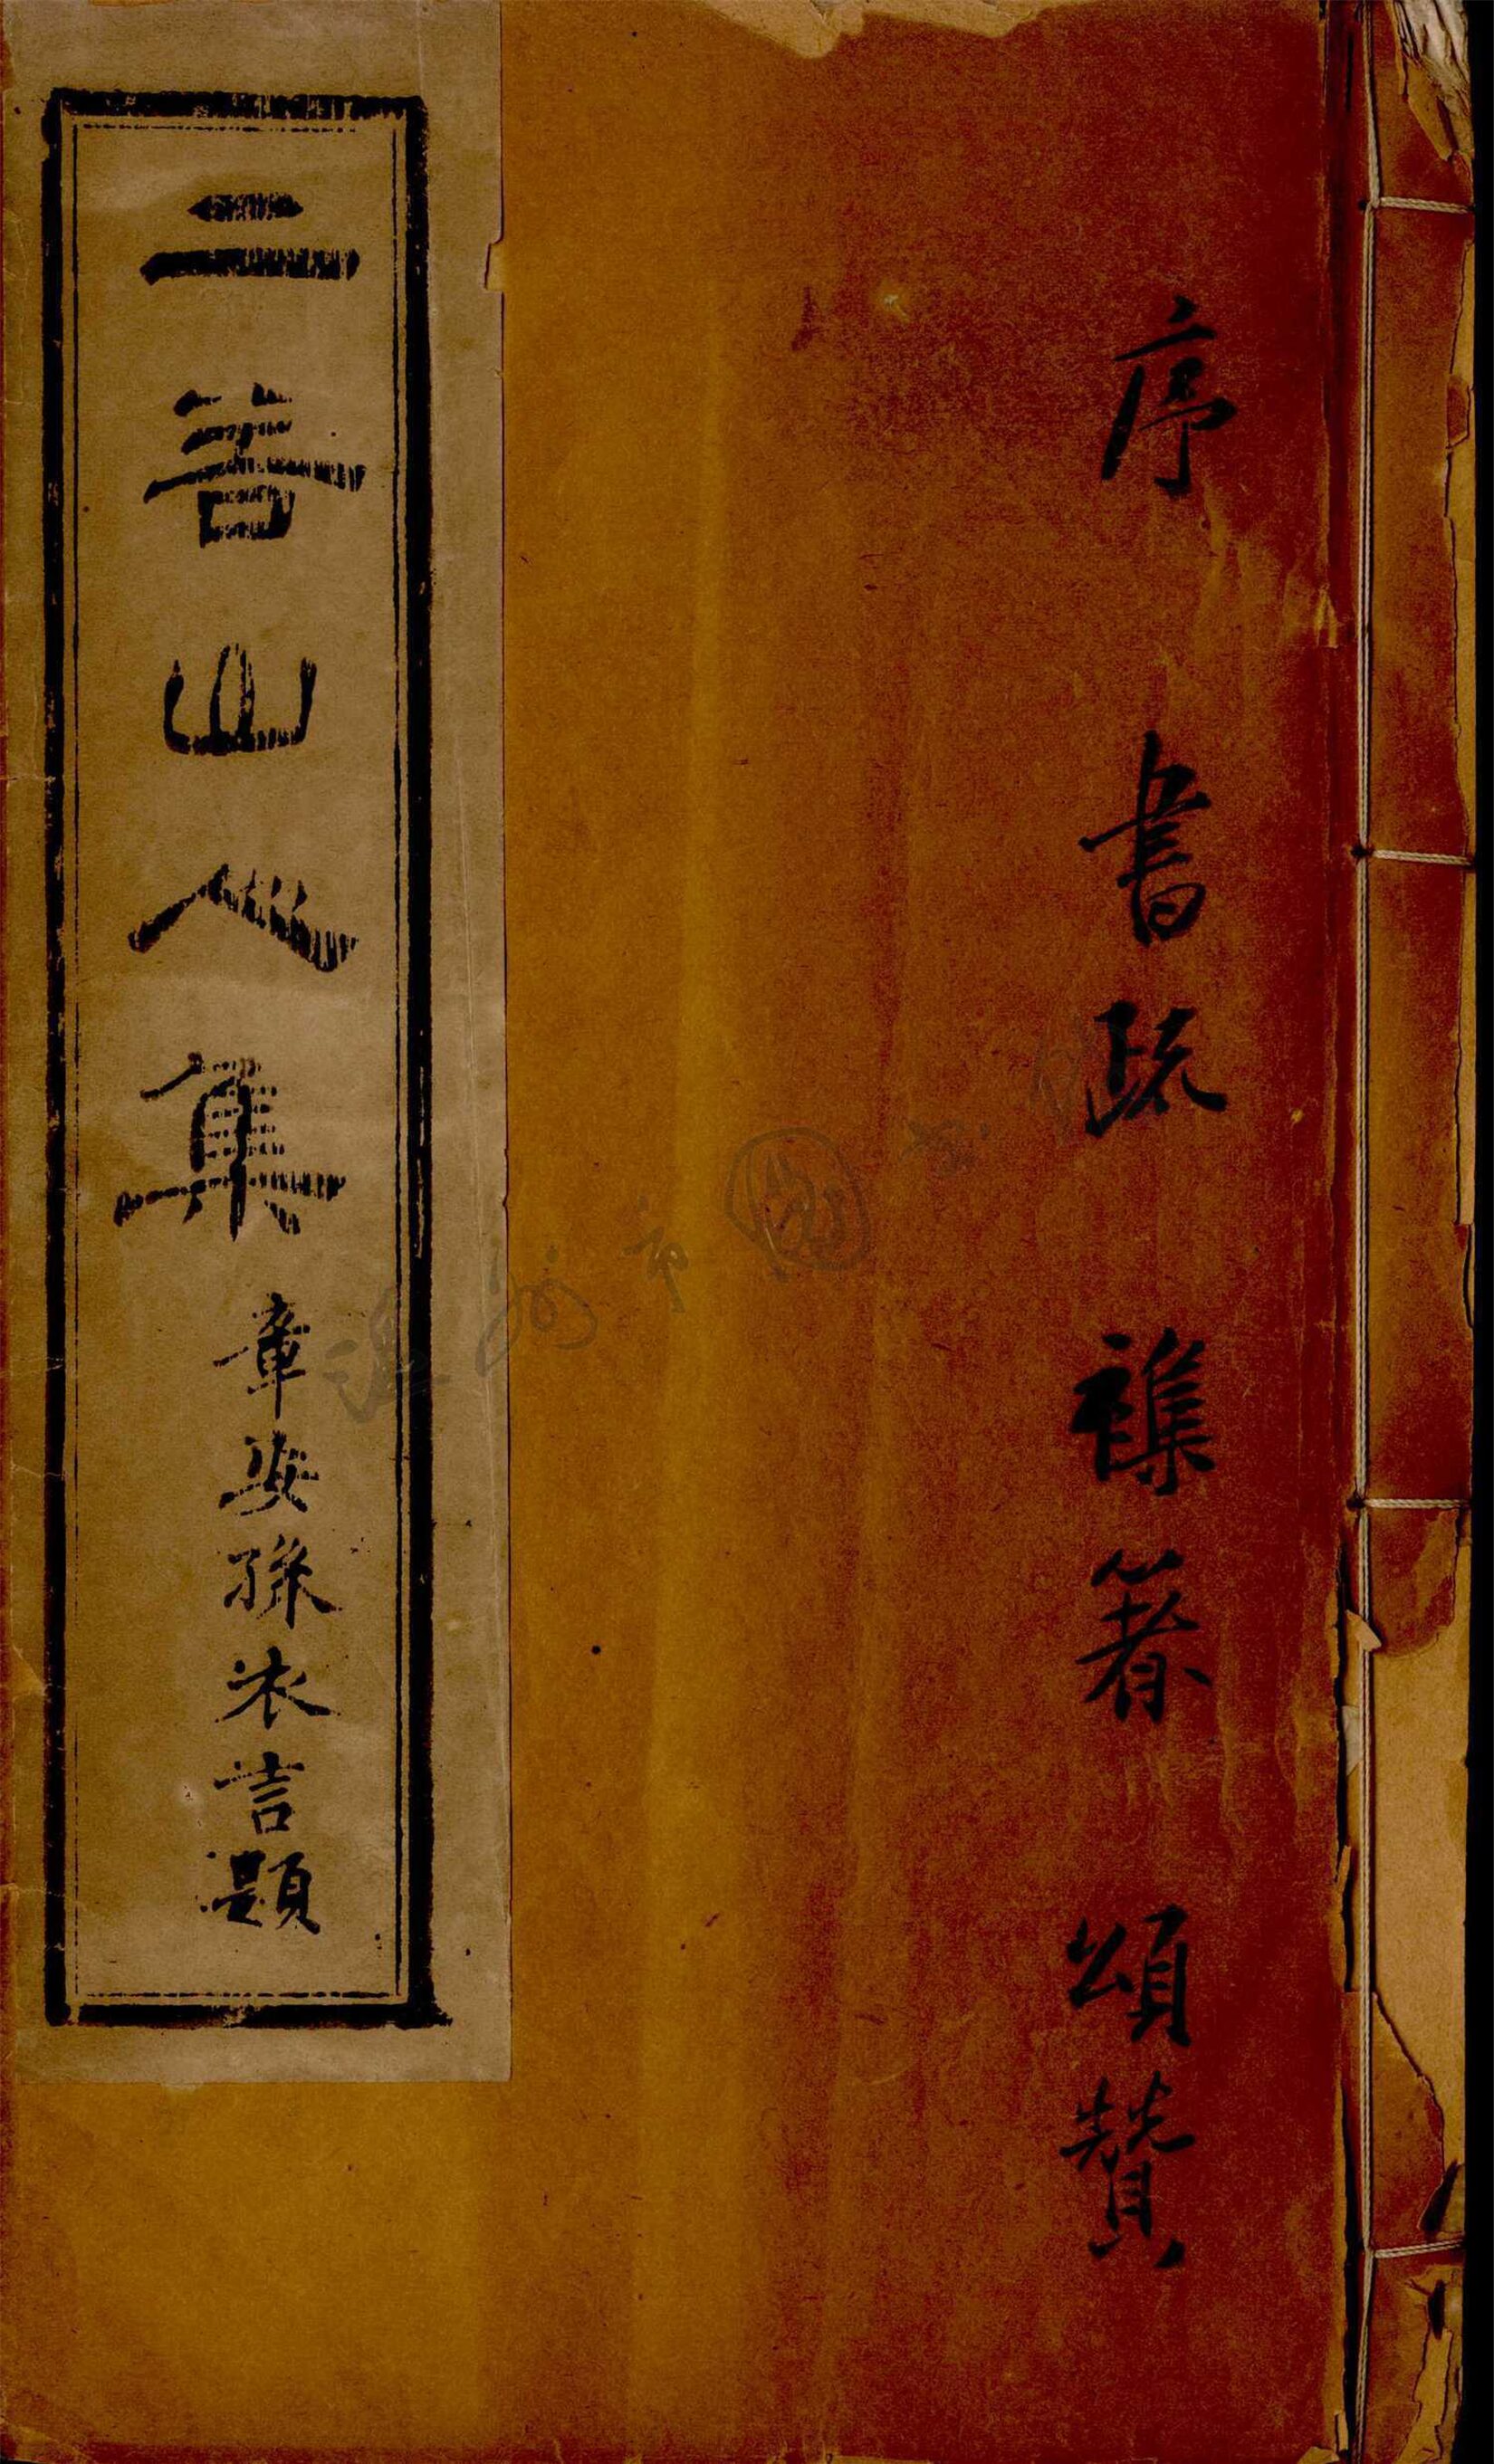 序 書疏 襍箸 頌贊
二谷山人集
章安孫衣言題